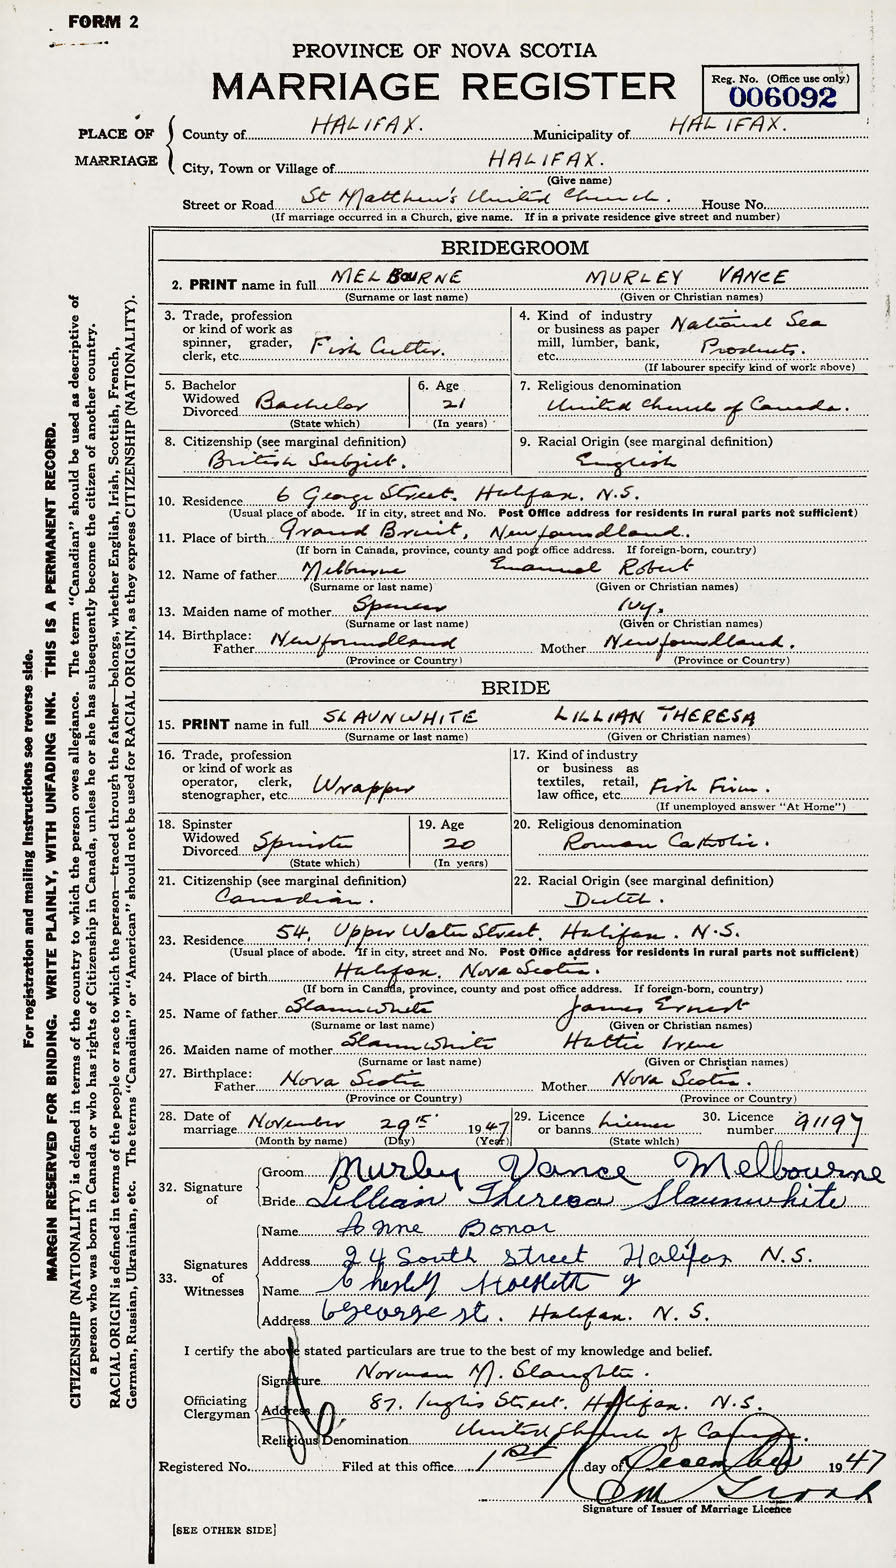 FORM 2
PROVINCE OF NOVA SCOTIA
MARRIAGE REGISTER
Reg. No. (Office use only)
006092
PLACE OF MARRIAGE
County of HALIFAX. Municipality of HALIFAX.
City, Town or Village of HALIFAX.
(Give name)
Street or Road St Matthew's United Church. House No.
(If marriage occurred in a Church, give name. If in a private residence give street and number)
BRIDEGROOM
2. PRINT name in full MELBOURNE MURLEY VANCE
(Surname or last name) (Given or Christian names)
3. Trade, profession or kind of work as spinner, grader, clerk, etc. Fish Cutter.
4. Kind of industry or business as paper mill, lumber, bank, etc. National Sea Products.
(If labourer specify kind of work above)
5. Bachelor Widowed Divorced Bachelor
(State which)
6. Age 21
(In years)
7. Religious denomination
United Church of Canada.
8. Citizenship (see marginal definition)
British Subject.
9. Racial Origin (see marginal definition)
English
10. Residence 6 George Street. Halifax. N.S.
(Usual place of abode. If in city, street and No. Post Office address for residents in rural parts not sufficient)
11. Place of birth Grand Bruit, Newfoundland.
(If born in Canada, province, county and post office address. If foreign-born, country)
12. Name of father Melbourne Emanuel Robert
(Surname or last name) (Given or Christian names)
13. Maiden name of mother Spencer Ivy.
(Surname or last name) (Given or Christian names)
14. Birthplace: Father Newfoundland Mother Newfoundland.
(Province or Country) (Province or Country)
BRIDE
15. PRINT name in full SLAUNWHITE LILLIAN THERESA
(Surname or last name) (Given or Christian names)
16. Trade, profession or kind of work as operator, clerk, stenographer, etc. Wrapper
17. Kind of industry or business as textiles, retail, law office, etc. Fish Firm.
(If unemployed answer "At Home")
18. Spinster Widowed Divorced Spinster
(State which)
19. Age 20
(In years)
20. Religious denomination
Roman Catholic.
21. Citizenship (see marginal definition)
Canadian.
22. Racial Origin (see marginal definition)
Dutch.
23. Residence 54, Upper Water Street. Halifax. N.S.
(Usual place of abode. If in city, street and No. Post Office address for residents in rural parts not sufficient)
24. Place of birth Halifax. Nova Scotia.
(If born in Canada, province, county and post office address. If foreign-born, country)
25. Name of father Slaunwhite James Ernest
(Surname or last name) (Given or Christian names)
26. Maiden name of mother Slaunwhite Hattie Irene
(Surname or last name) (Given or Christian names)
27. Birthplace: Father Nova Scotia Mother Nova Scotia.
(Province or Country) (Province or Country)
28. Date of marriage November 29th 1947
(Month by name) (Day) (Year)
29. Licence or banns License
(State which)
30. Licence number 91197
32. Signature of
Groom Murley Vance Melbourne
Bride Lillian Theresa Slaunwhite
33. Signatures of Witnesses
Name Anne Bonar
Address 24 South street Halifax N.S.
Name
Address 6 George st. Halifax. N.S.
I certify the above stated particulars are true to the best of my knowledge and belief.
Officiating Clergyman
Signature Norman M. Slaughter.
Address 87. Inglis Street. Halifax. N.S.
Religious Denomination United Church of Canada.
Registered No. Filed at this office 1st day of December 1947
Signature of Issuer of Marriage Licence
[SEE OTHER SIDE]
For registration and mailing instructions see reverse side.
MARGIN RESERVED FOR BINDING. WRITE PLAINLY, WITH UNFADING INK. THIS IS A PERMANENT RECORD.
CITIZENSHIP (NATIONALITY) is defined in terms of the country to which the person owes allegiance. The term "Canadian" should be used as descriptive of
a person who was born in Canada or who has rights of Citizenship in Canada, unless he or she has subsequently become the citizen of another country.
RACIAL ORIGIN is defined in terms of the people or race to which the person—traced through the father—belongs, whether English, Irish, Scottish, French,
German, Russian, Ukrainian, etc. The terms "Canadian" or "American" should not be used for RACIAL ORIGIN, as they express CITIZENSHIP (NATIONALITY).